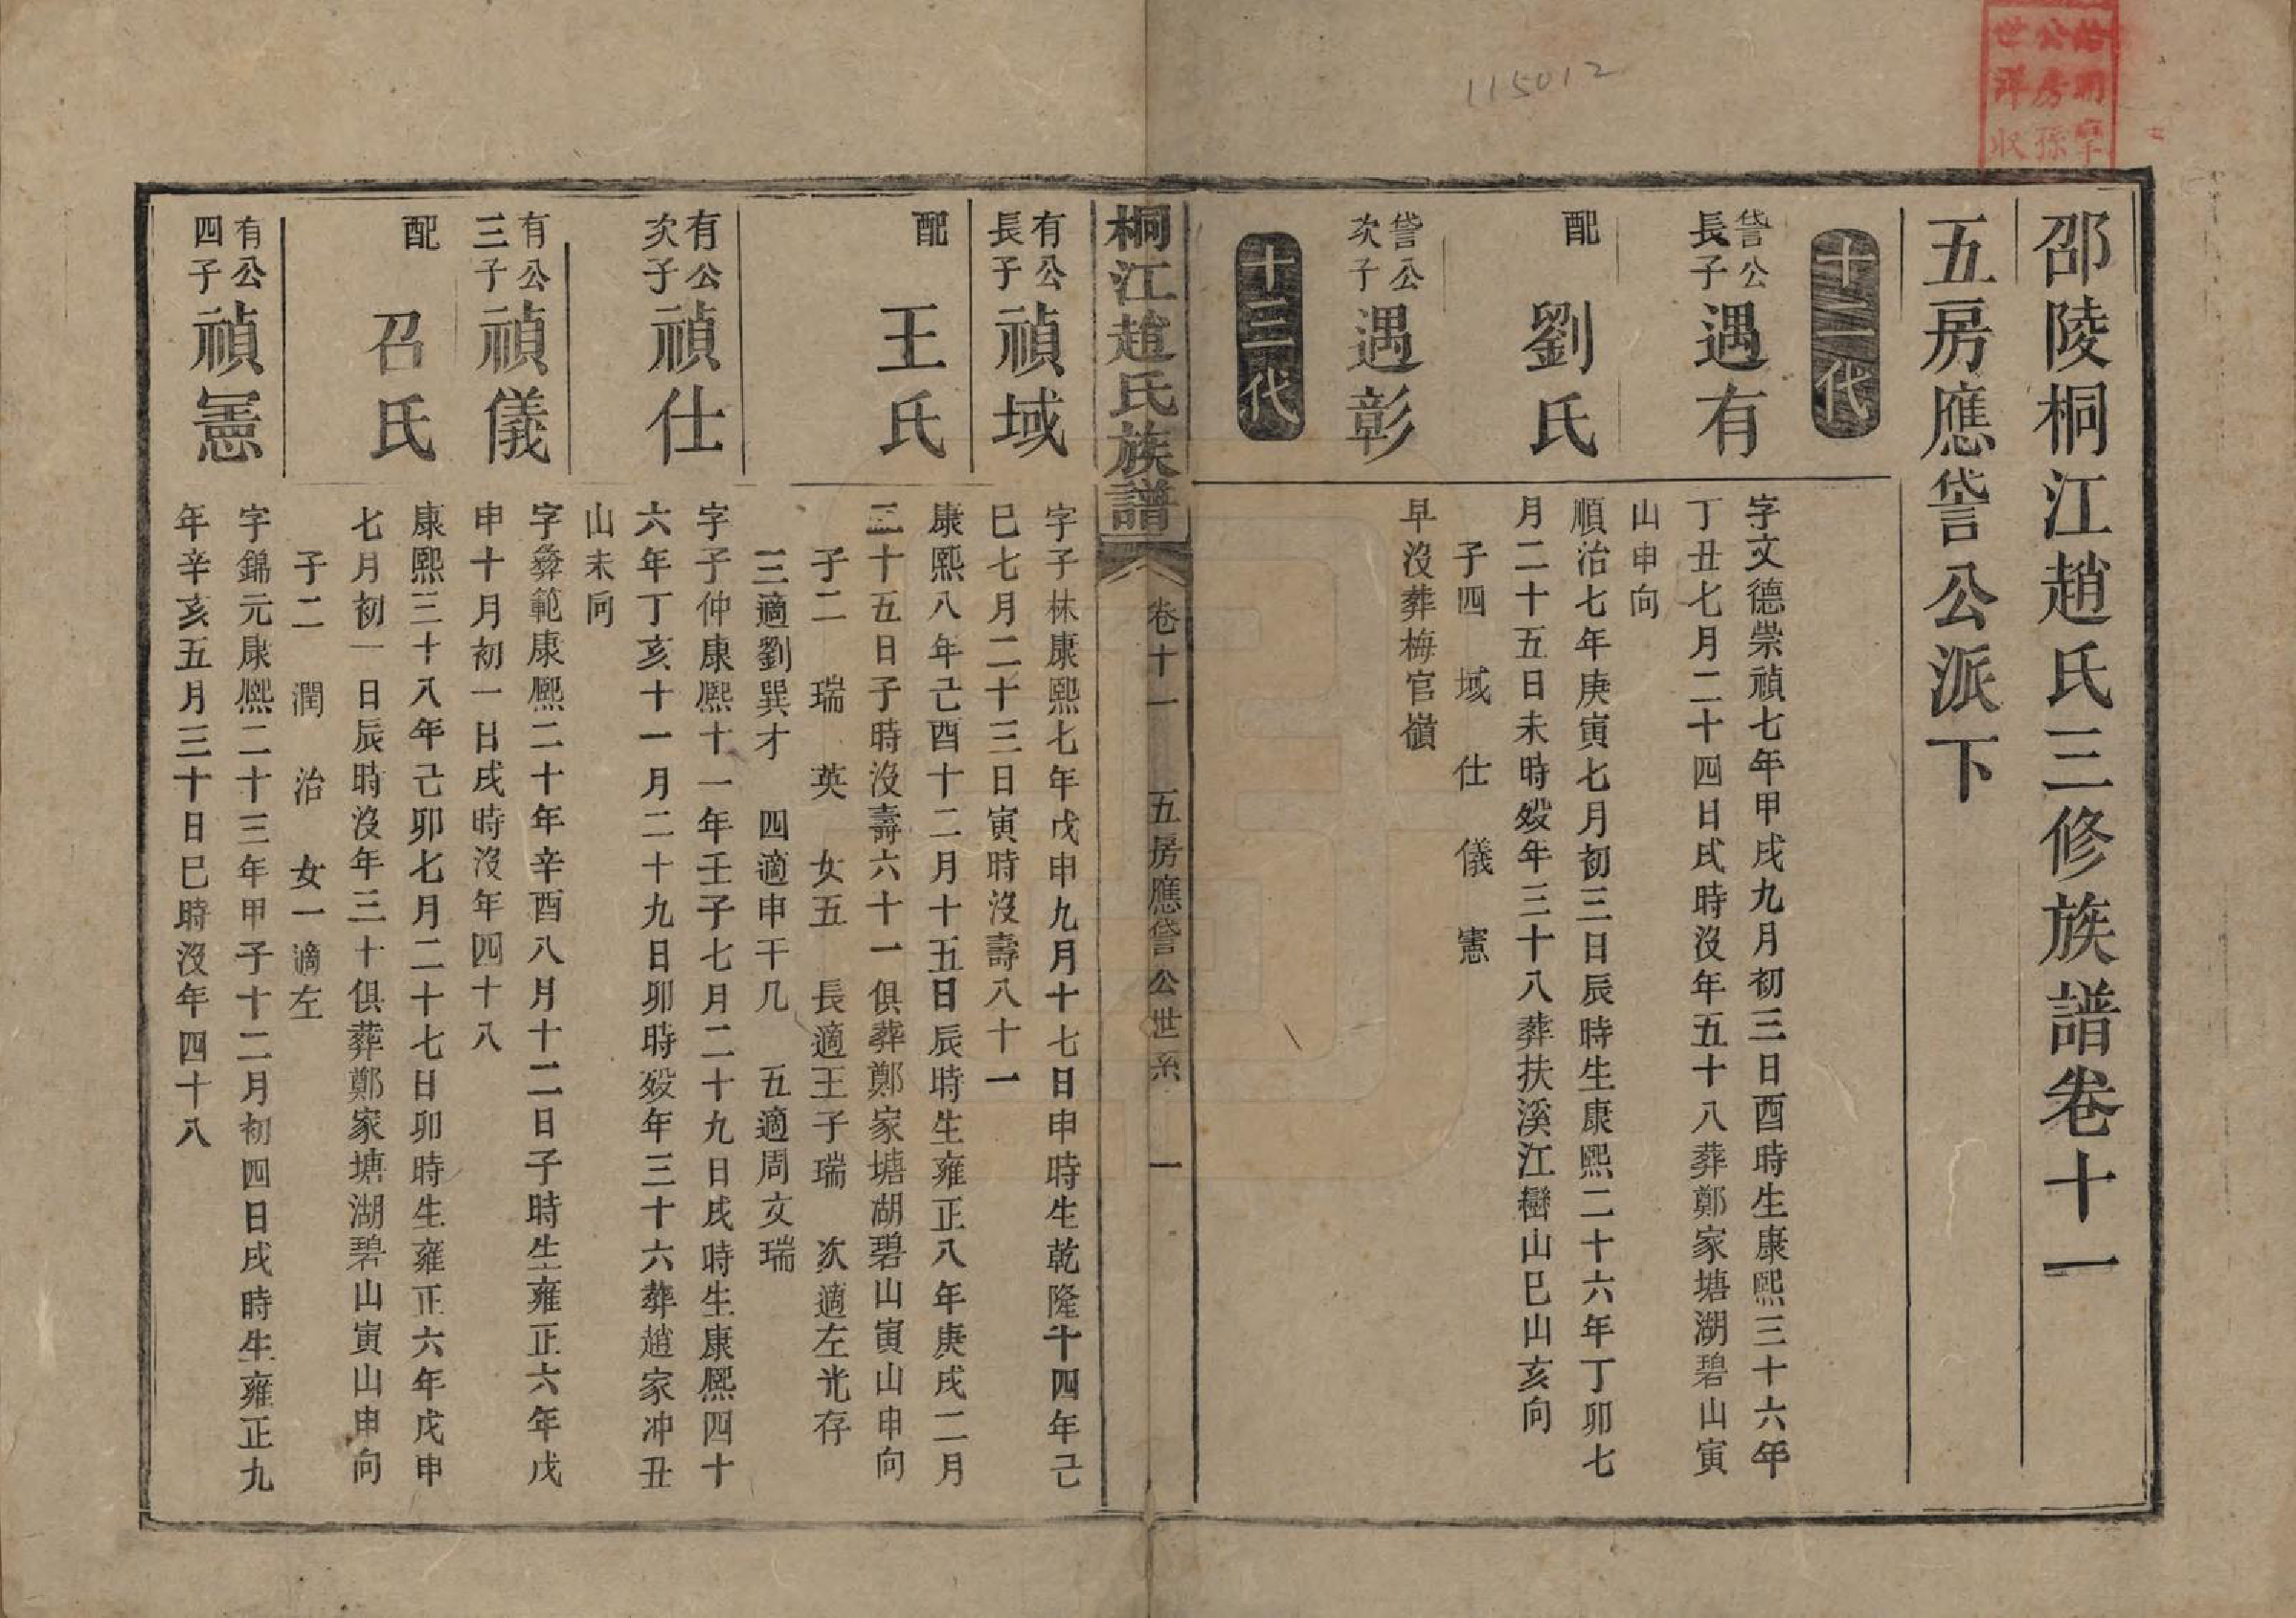 115012
邵陵桐江趙氏三修族譜卷十一
五房應嵤公派下
十二代
嵤公長子遇有
字文德崇禎七年甲戌九月初三日酉時生康熙三十六年
丁丑七月二十四日戌時沒年五十八葬鄭家塘湖碧山寅
山申向
配劉氏
順治七年庚寅七月初三日辰時生康熙二十六年丁卯七
月二十五日未時歿年三十八葬扶溪江巒山巳山亥向
子四 域 仕 儀 憲
嵤公次子遇彰
早沒葬梅官嶺
十三代
桐江趙氏族譜 卷十一 五房應嵤公世系 一
有公長子禎域
字子林康熙七年戊申九月十七日申時生乾隆十四年己
巳七月二十三日寅時沒壽八十一
配王氏
康熙八年己酉十二月十五日辰時生雍正八年庚戌二月
二十五日子時沒壽六十一俱葬鄭家塘湖碧山寅山申向
子二 瑞 英 女五 長適王子瑞 次適左光存
三適劉巽才 四適申干几 五適周文瑞
有公次子禎仕
字子仲康熙十一年壬子七月二十九日戌時生康熙四十
六年丁亥十一月二十九日卯時歿年三十六葬趙家冲丑
山未向
有公三子禎儀
字彝範康熙二十年辛酉八月十二日子時生雍正六年戊
申十月初一日戌時沒年四十八
配召氏
康熙三十八年己卯七月二十七日卯時生雍正六年戊申
七月初一日辰時沒年三十俱葬鄭家塘湖碧山寅山申向
子二 潤 治 女一適左
有公四子禎憲
字錦元康熙二十三年甲子十二月初四日戌時生雍正九
年辛亥五月三十日巳時沒年四十八